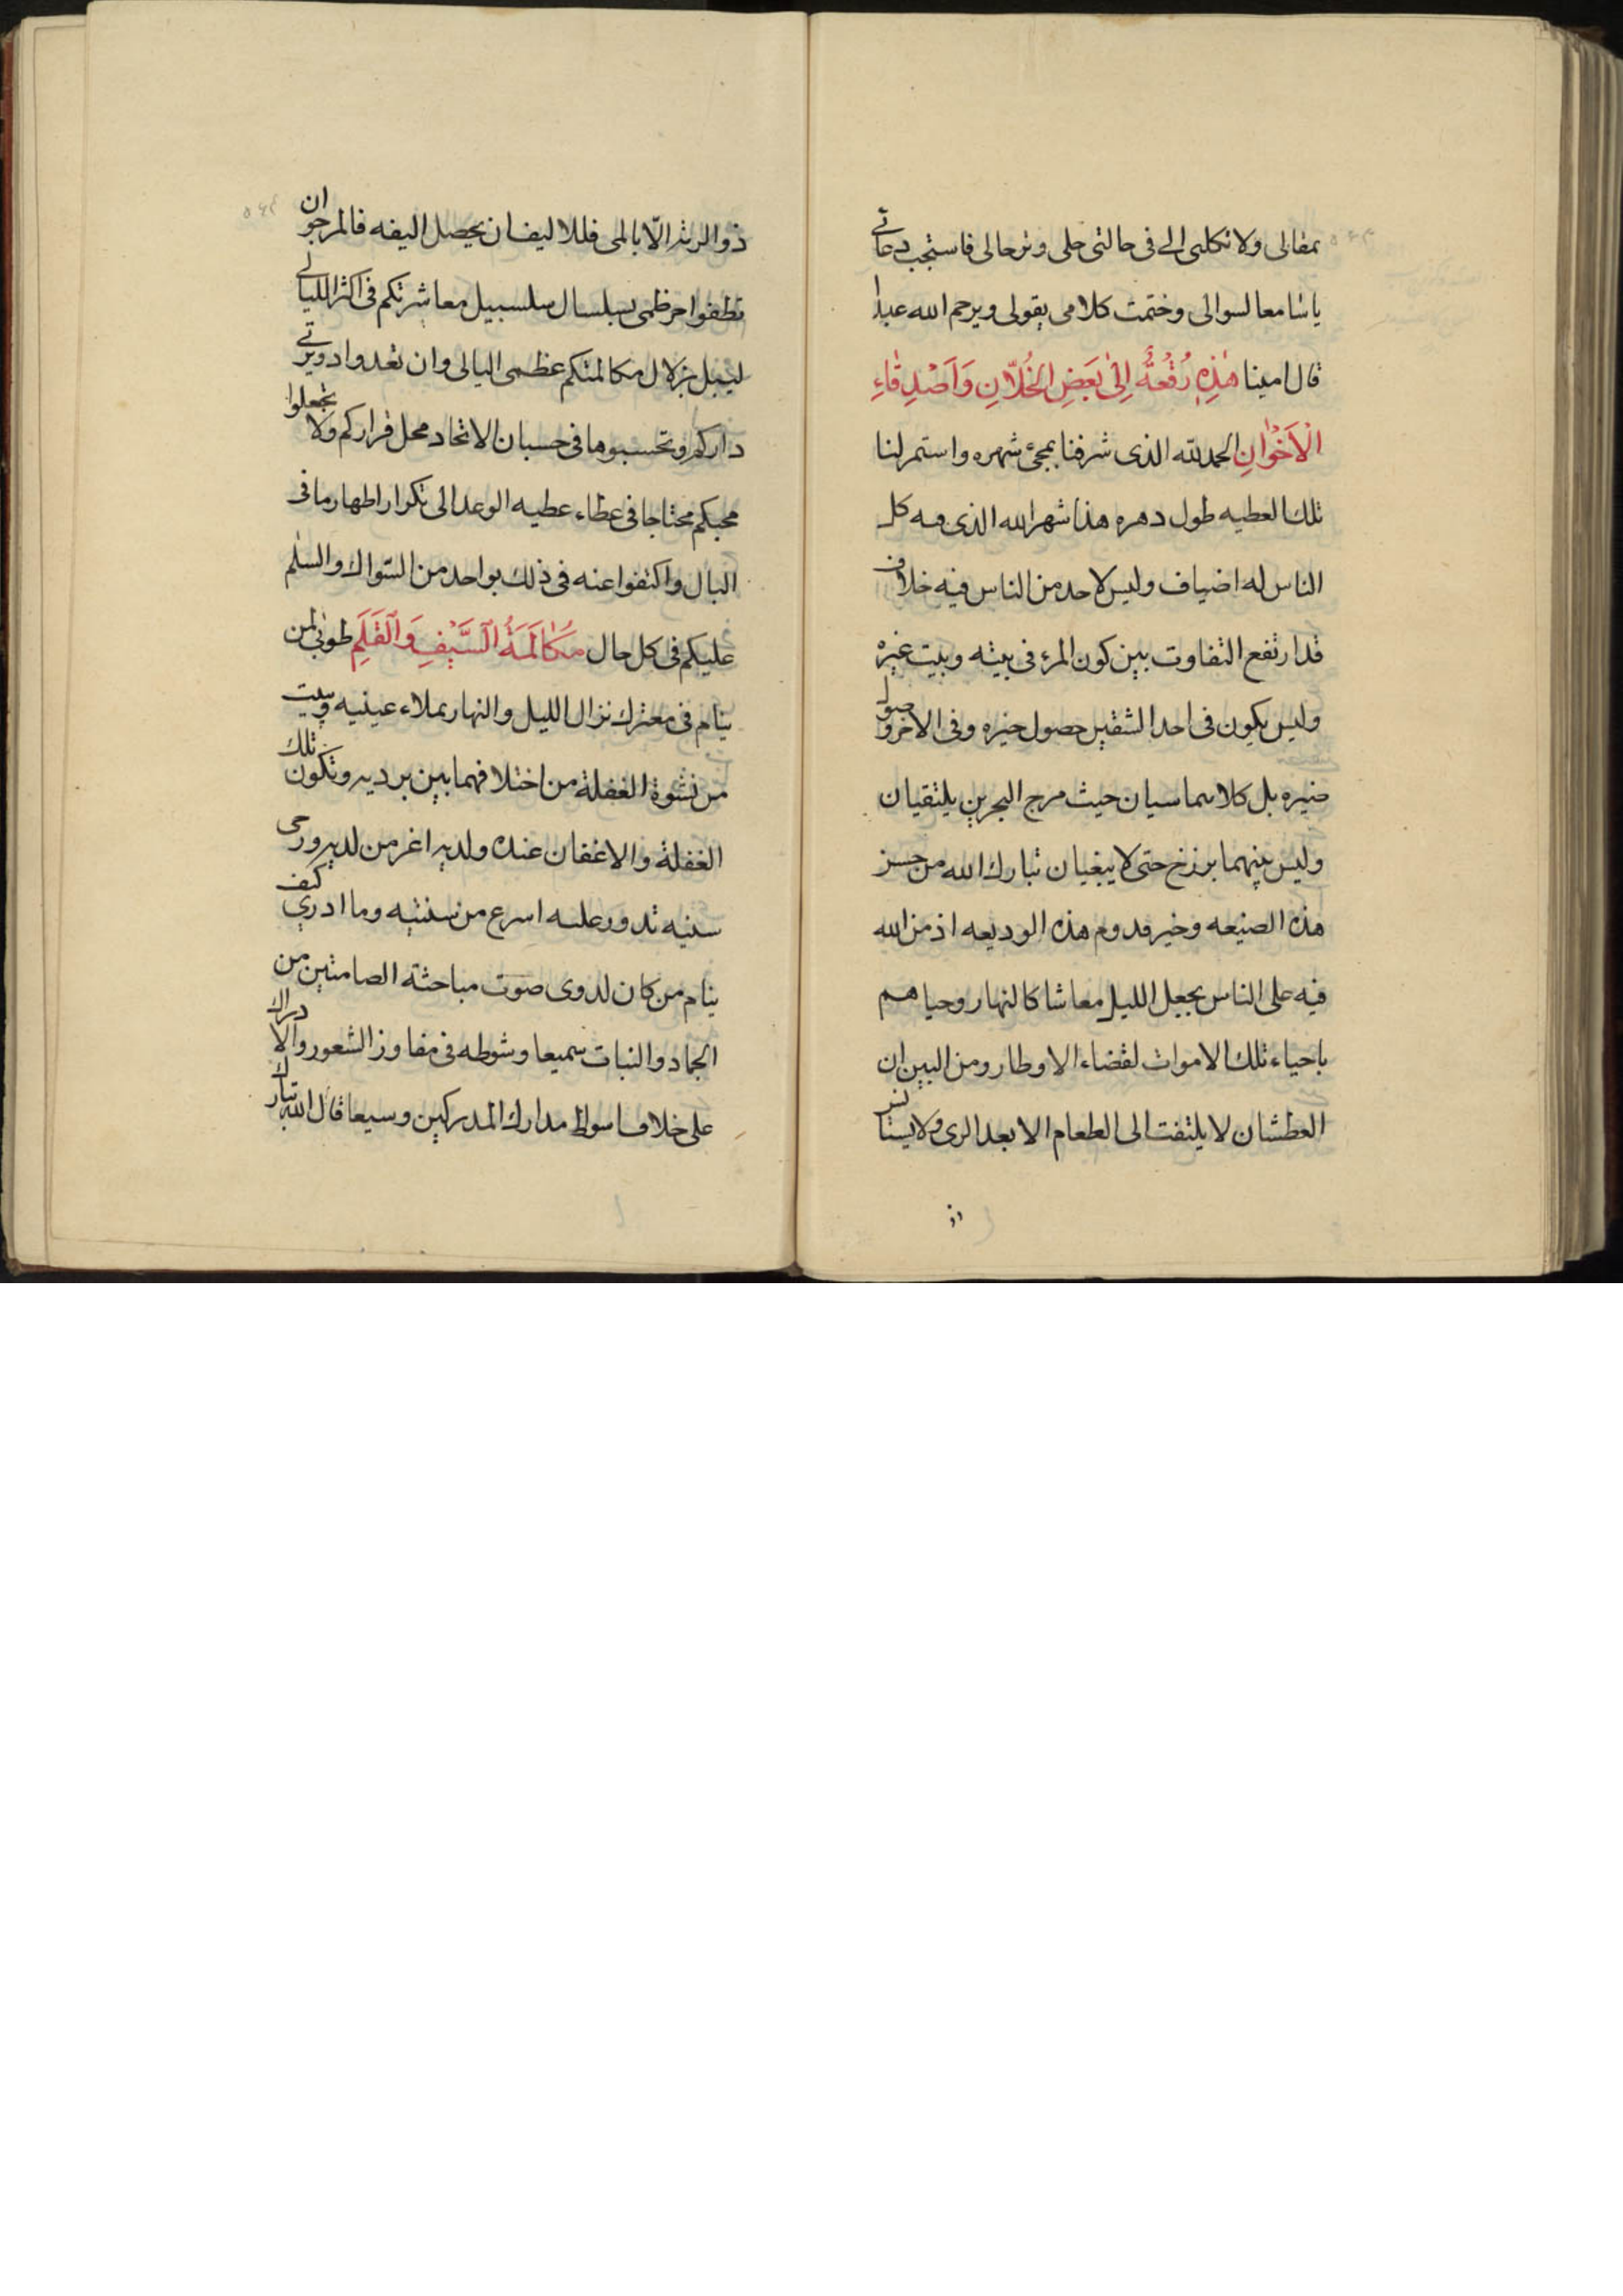 بمقالى ولا تكلنى الى فى حالتى حلى وترحالى فاستجب دعائى
يا سامعا لسوالى وختمت كلامى بقولى ويرحم الله عبدا
قال امينا هٰذِهِ رُقْعَةٌ اِلىٰ بَعْضِ الخُلّانِ وَاَصْدِقَاءِ
الْاَخْوانِ الحمد لله الذى شرفنا بمجئ شهره واستمر لنا
تلك العطيه طول دهره هذا شهر الله الذى فيه كل
الناس له اضياف وليس لاحد من الناس فيه خلاف
قد ارتفع التفاوت بين كون المرء فى بيته وبيت غيره
وليس يكون فى احد الشقين حصول خيره وفى الاخر
ضيره بل كلاهما سيان حيث مرج البحرين يلتقيان
وليس بينهما برزخ حتى لا يبغيان تبارك الله من حسن
هذه الصنيعه وخير قدوم هذه الوديعه اذ من الله
فيه على الناس بجعل الليل معاشا كالنهار وحياهم
باحياء تلك الاموات لقضاء الاوطار ومن البين ان
العطشان لا يلتفت الى الطعام الا بعد الرى ولا يستانس
ذو الرشد الّا بالمى فللاليف ان يحصل اليفه فالمرجو ان
تطفوا حر ظمئ بسلسال سلسبيل معاشرتكم فى اكثر الليالى
ليبل بزلال مكالمتكم عظمى البالى وان تعدوا دويرتى
داركم وتحسبوها فى حسبان الاتحاد محل قراركم ولا تجعلوا
محبكم محتاجا فى عطاء عطيه الوعد الى تكرار اظهار ما فى
البال واكتفوا عنه فى ذلك بواحد من السّوال والسّلم
عليكم فى كل حال مُكَالَمَةُ السَّيْفِ وَالْقَلَمِ طوبى لمن
ينام فى معترك نزال الليل والنهار بملاء عينيه ويبيت
من نشوة الغفلة من اختلافهما بين برديه وتكون تلك
الغفلة والاغفان عنده ولديه اغر من لديه ورحى
سنيه تدور عليه اسرع من سنتيه وما ادرى كيف
ينام من كان لدوى صوت مباحثة الصامتين من
الجماد والنبات سميعا وشوطه فى مفاوز الشعور والادراك
على خلاف اسواط مدارك المدركين وسيعا قال الله تبارك